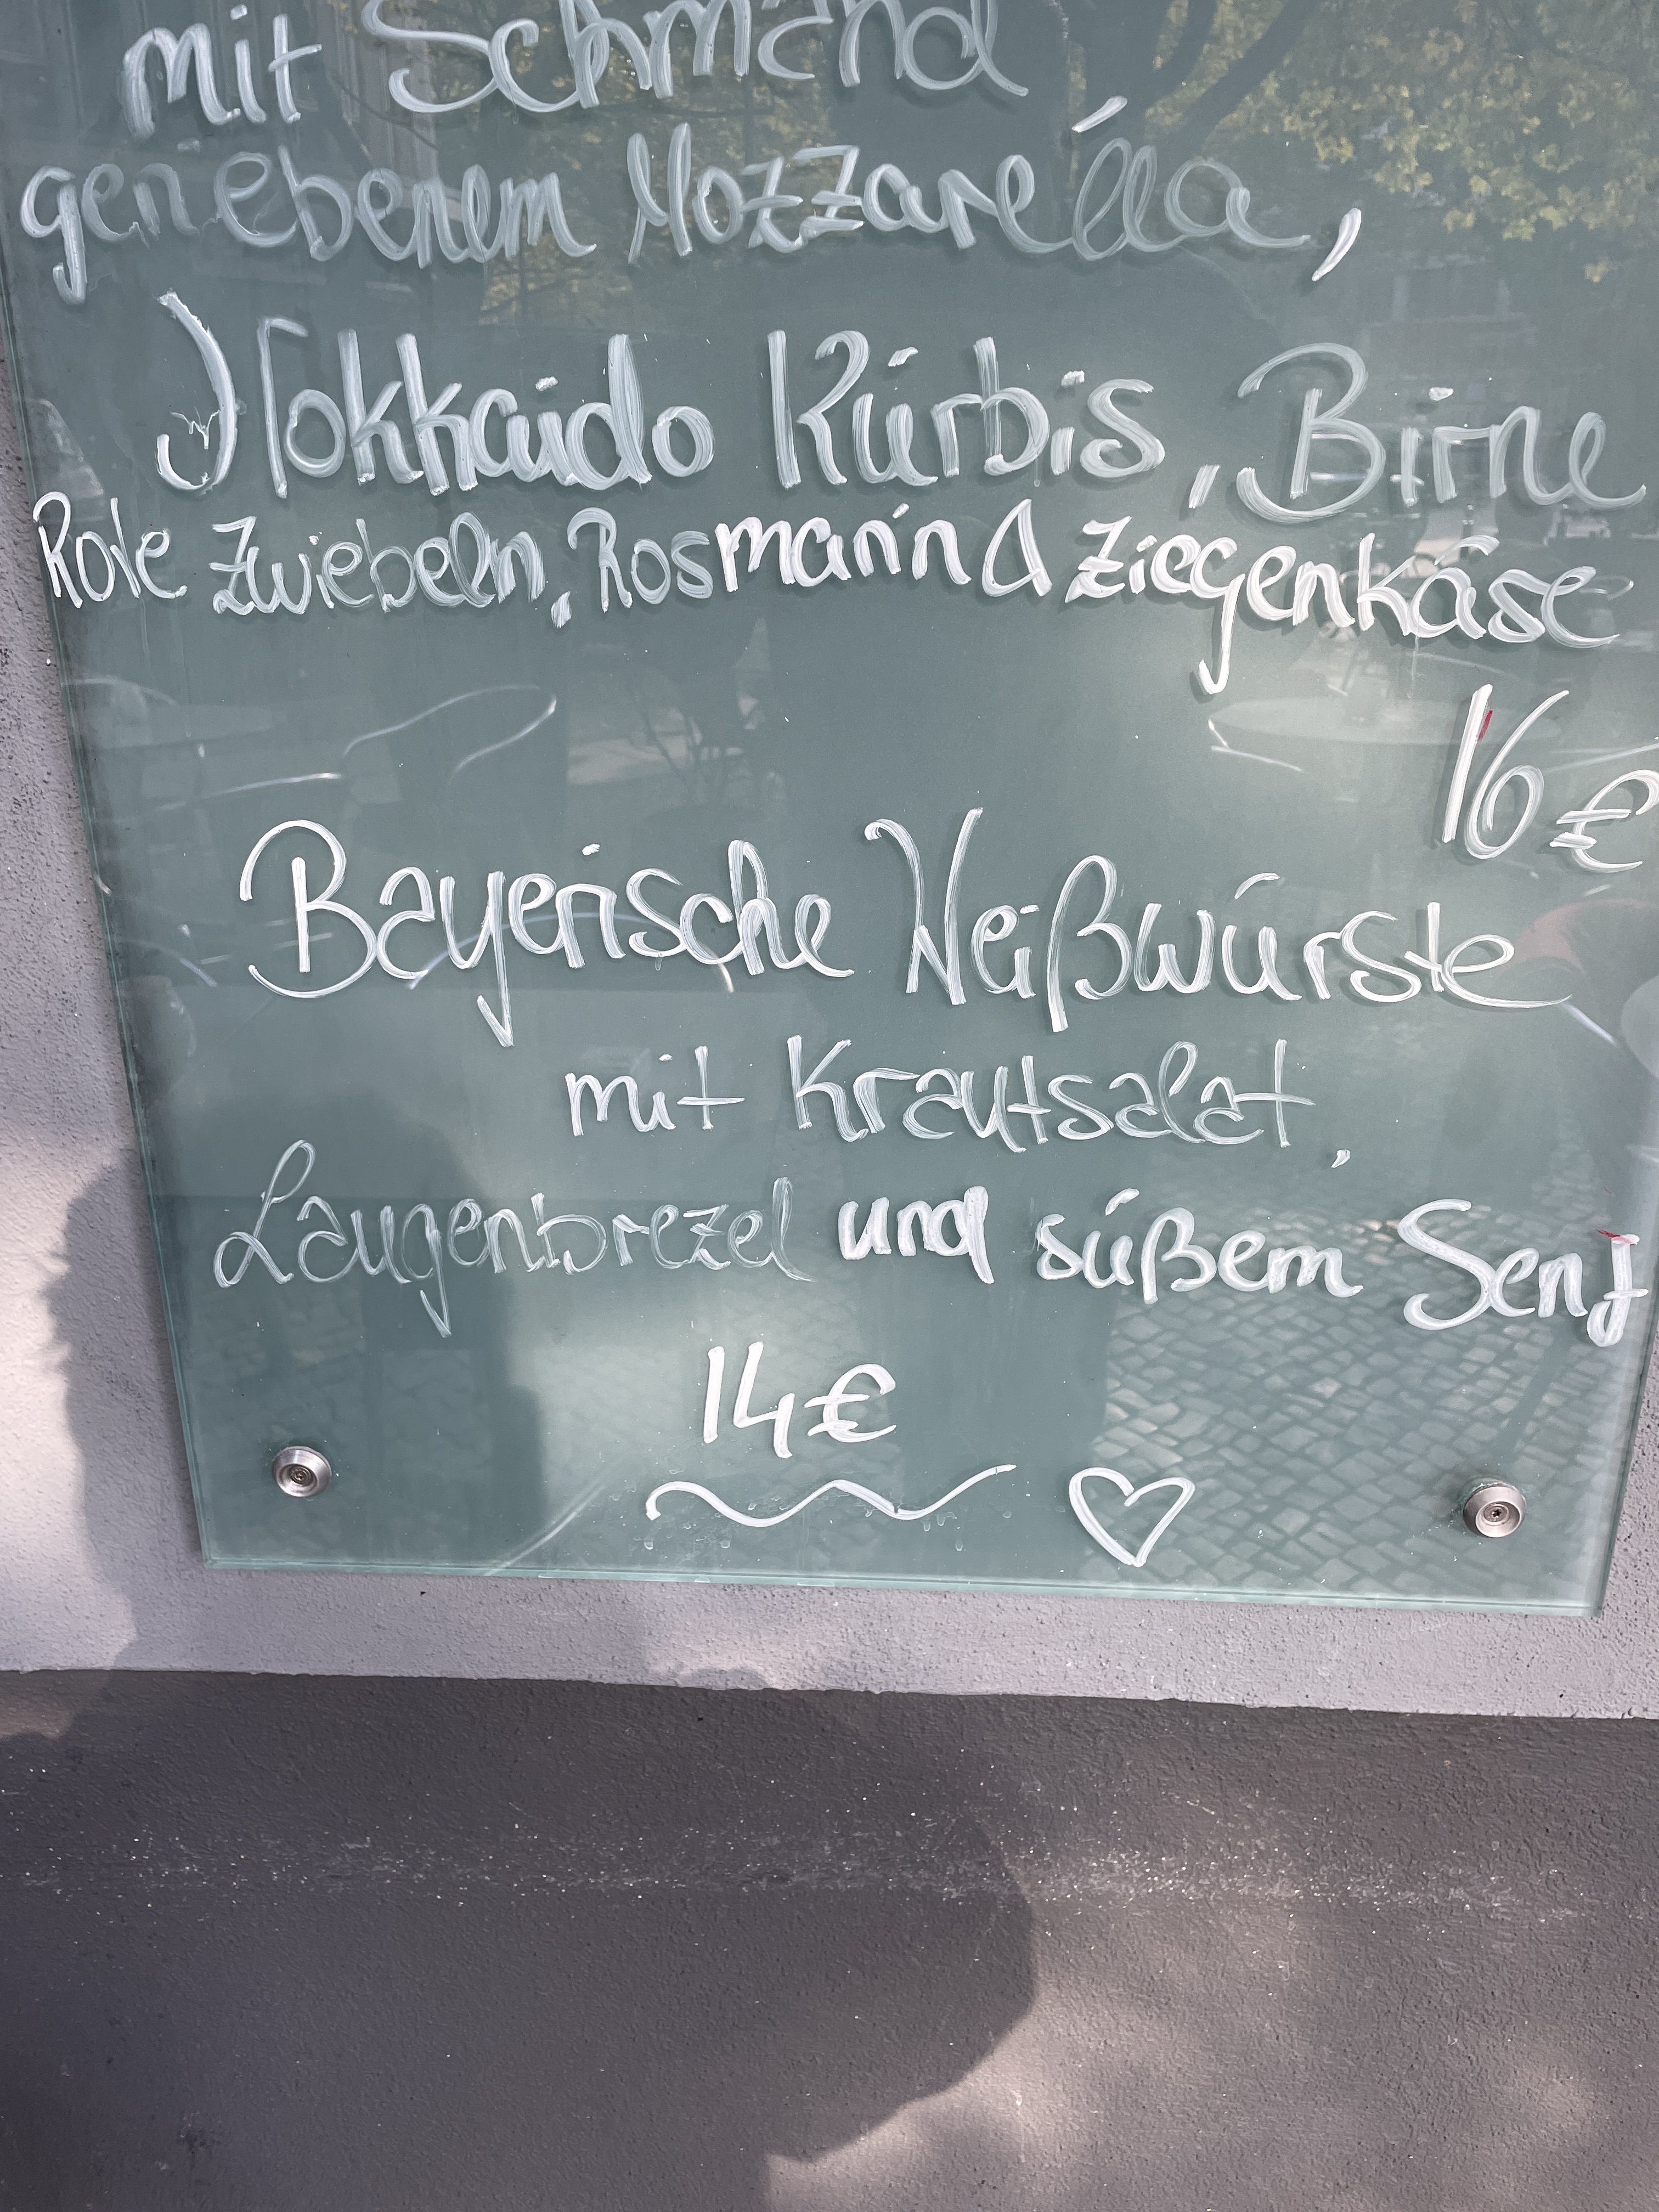 mit Schmand
geriebenem Mozzarella,
Hokkaido Kürbis, Birne
Rote Zwiebeln, Rosmarin & Ziegenkäse
16€
Bayerische Weißwürste
mit Krautsalat,
Laugenbrezel und süßem Senf
14€